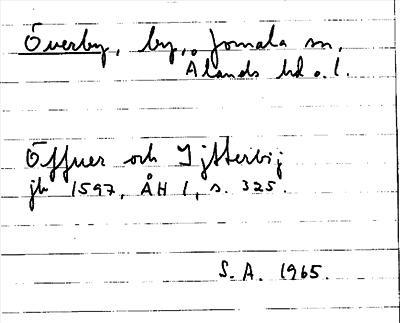 Överby, by, Jomala sn,
Ålands hd o. l.
Öffuer och Yjtterbij
jb 1597, ÅH 1, s. 325.
S. A. 1965.